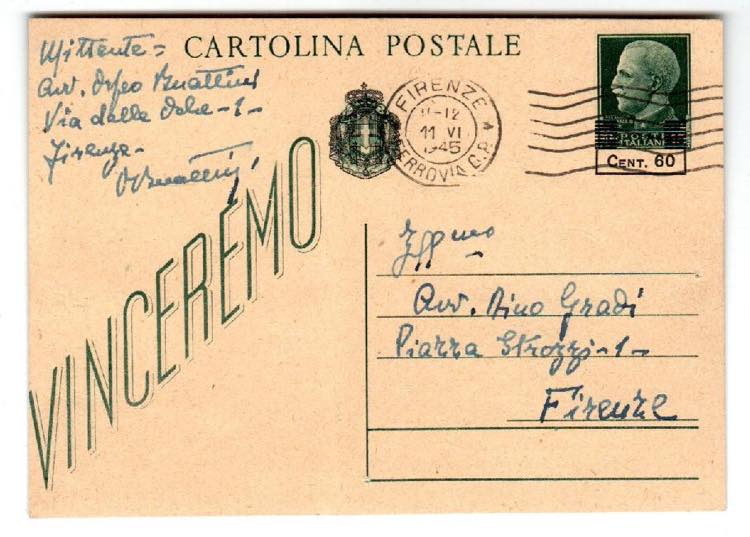 CARTOLINA POSTALE
Mittente =
Avv. Orfeo
Via delle -1-
Firenze-
VINCEREMO
FIRENZE
11-12
11 VI
1945
FERROVIA C.P.
POSTE
ITALIANE
CENT. 60
Avv. Dino Gradi
Piazza Strozzi-1-
Firenze